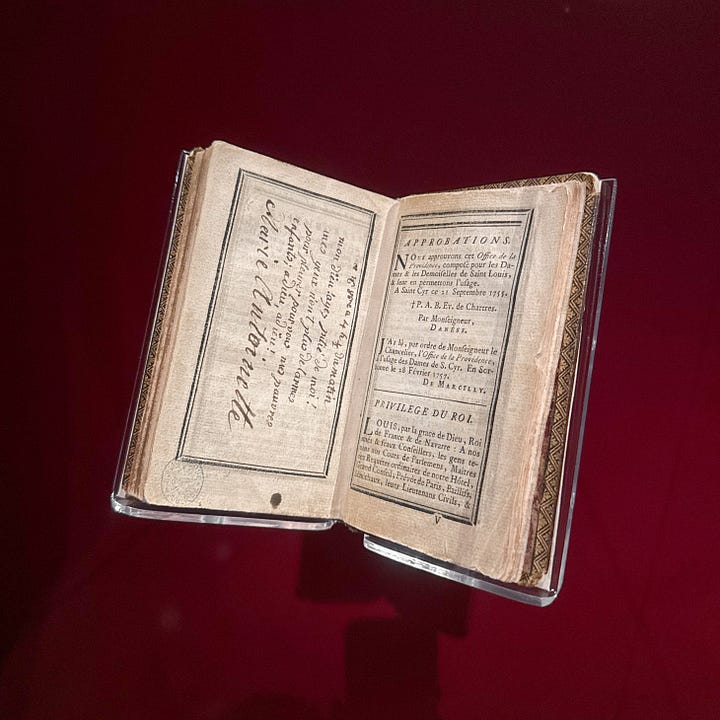 ce 16 8bre a 4 h ½ du matin
mon dieu ayez pitié de moi !
mes yeux n'ont plus de larmes
pour pleurer pour vous mes pauvres
enfants ; adieu adieu !
Marie Antoinette
APPROBATIONS.
NOUS approuvons cet Office de la
Providence, composé pour les Da-
mes & les Demoiselles de Saint Louis,
& leur en permettons l'usage.
A Saint Cyr ce 21 Septembre 1755.
† P. A. B. Ev. de Chartres.
Par Monseigneur,
DANÈSE.
J'AI lû, par ordre de Monseigneur le
Chancelier, l'Office de la Providence, à
l'usage des Dames de S. Cyr. En Sor-
bonne le 18 Février 1757.
DE MARCILLY.
PRIVILEGE DU ROI.
LOUIS, par la grace de Dieu, Roi
de France & de Navarre : A nos
amés & féaux Conseillers, les gens te-
nans nos Cours de Parlemens, Maîtres
des Requêtes ordinaires de notre Hôtel,
Grand Conseil, Prévôt de Paris, Baillifs,
Sénéchaux, leurs Lieutenans Civils, &
V